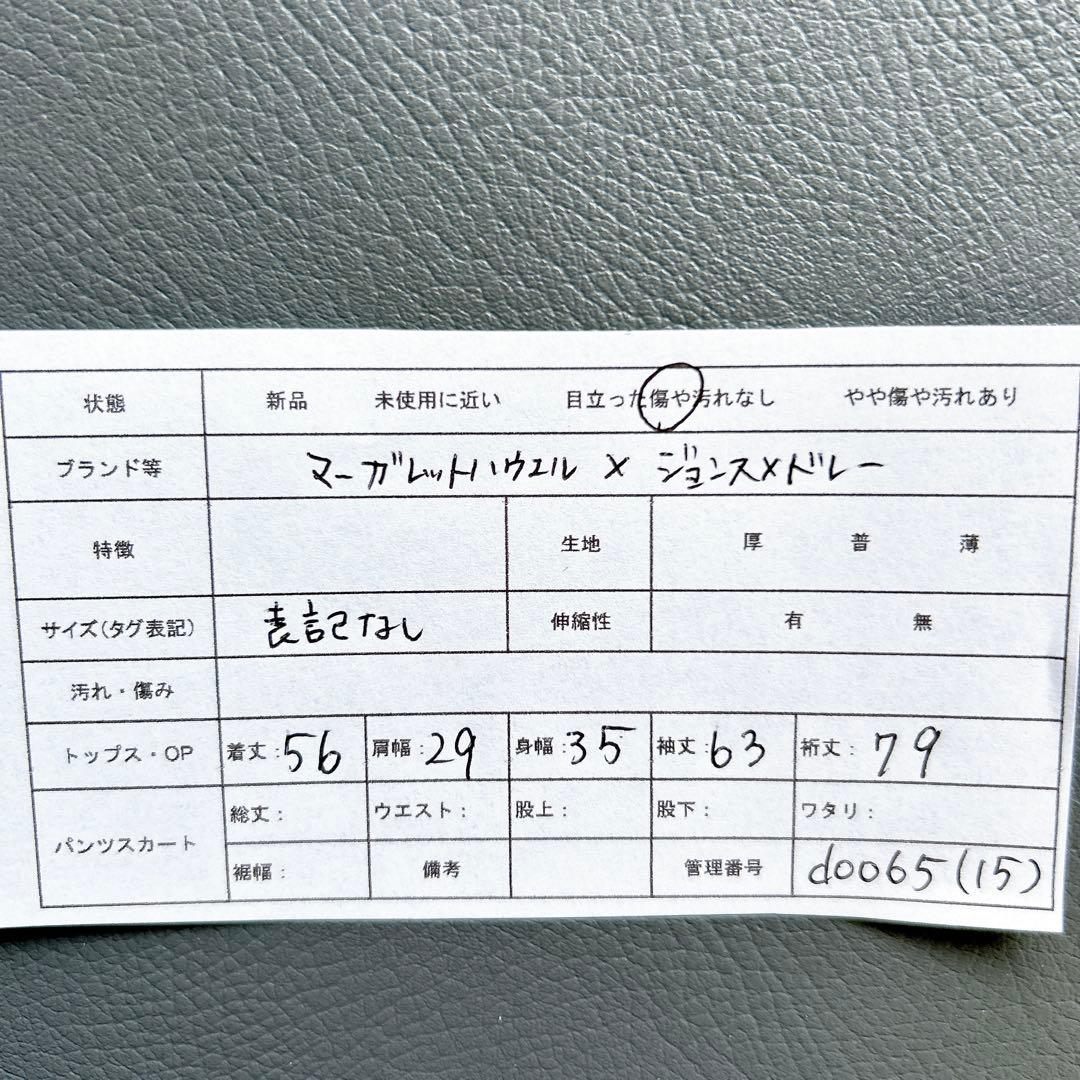 状態 新品 未使用に近い 目立った傷や汚れなし やや傷や汚れあり
ブランド等 マーガレットハウエル × ジョンスメドレー
特徴 生地 厚 普 薄
サイズ(タグ表記) 表記なし 伸縮性 有 無
汚れ・傷み
トップス・OP 着丈:56 肩幅:29 身幅:35 袖丈:63 裄丈:79
パンツスカート 総丈: ウエスト: 股上: 股下: ワタリ:
裾幅: 備考 管理番号 d0065(15)